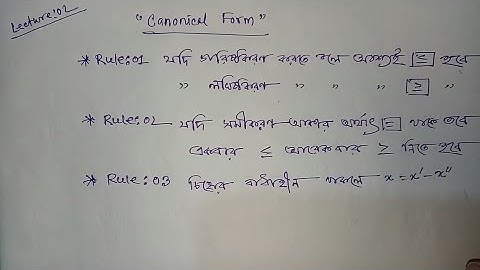 Lecture:02
"Canonical Form"
* Rule:01 যদি গরিষ্ঠকরণ করতে বলে অবশ্যই ≤ হবে
" লঘিষ্ঠকরণ " " " ≥ "
* Rule:02 যদি সমীকরণ আকার অর্থাৎ = থাকে তবে
একবার ≤ আরেকবার ≥ নিতে হবে
* Rule:03 চিহ্নের বাধাহীন থাকলে x = x' - x"